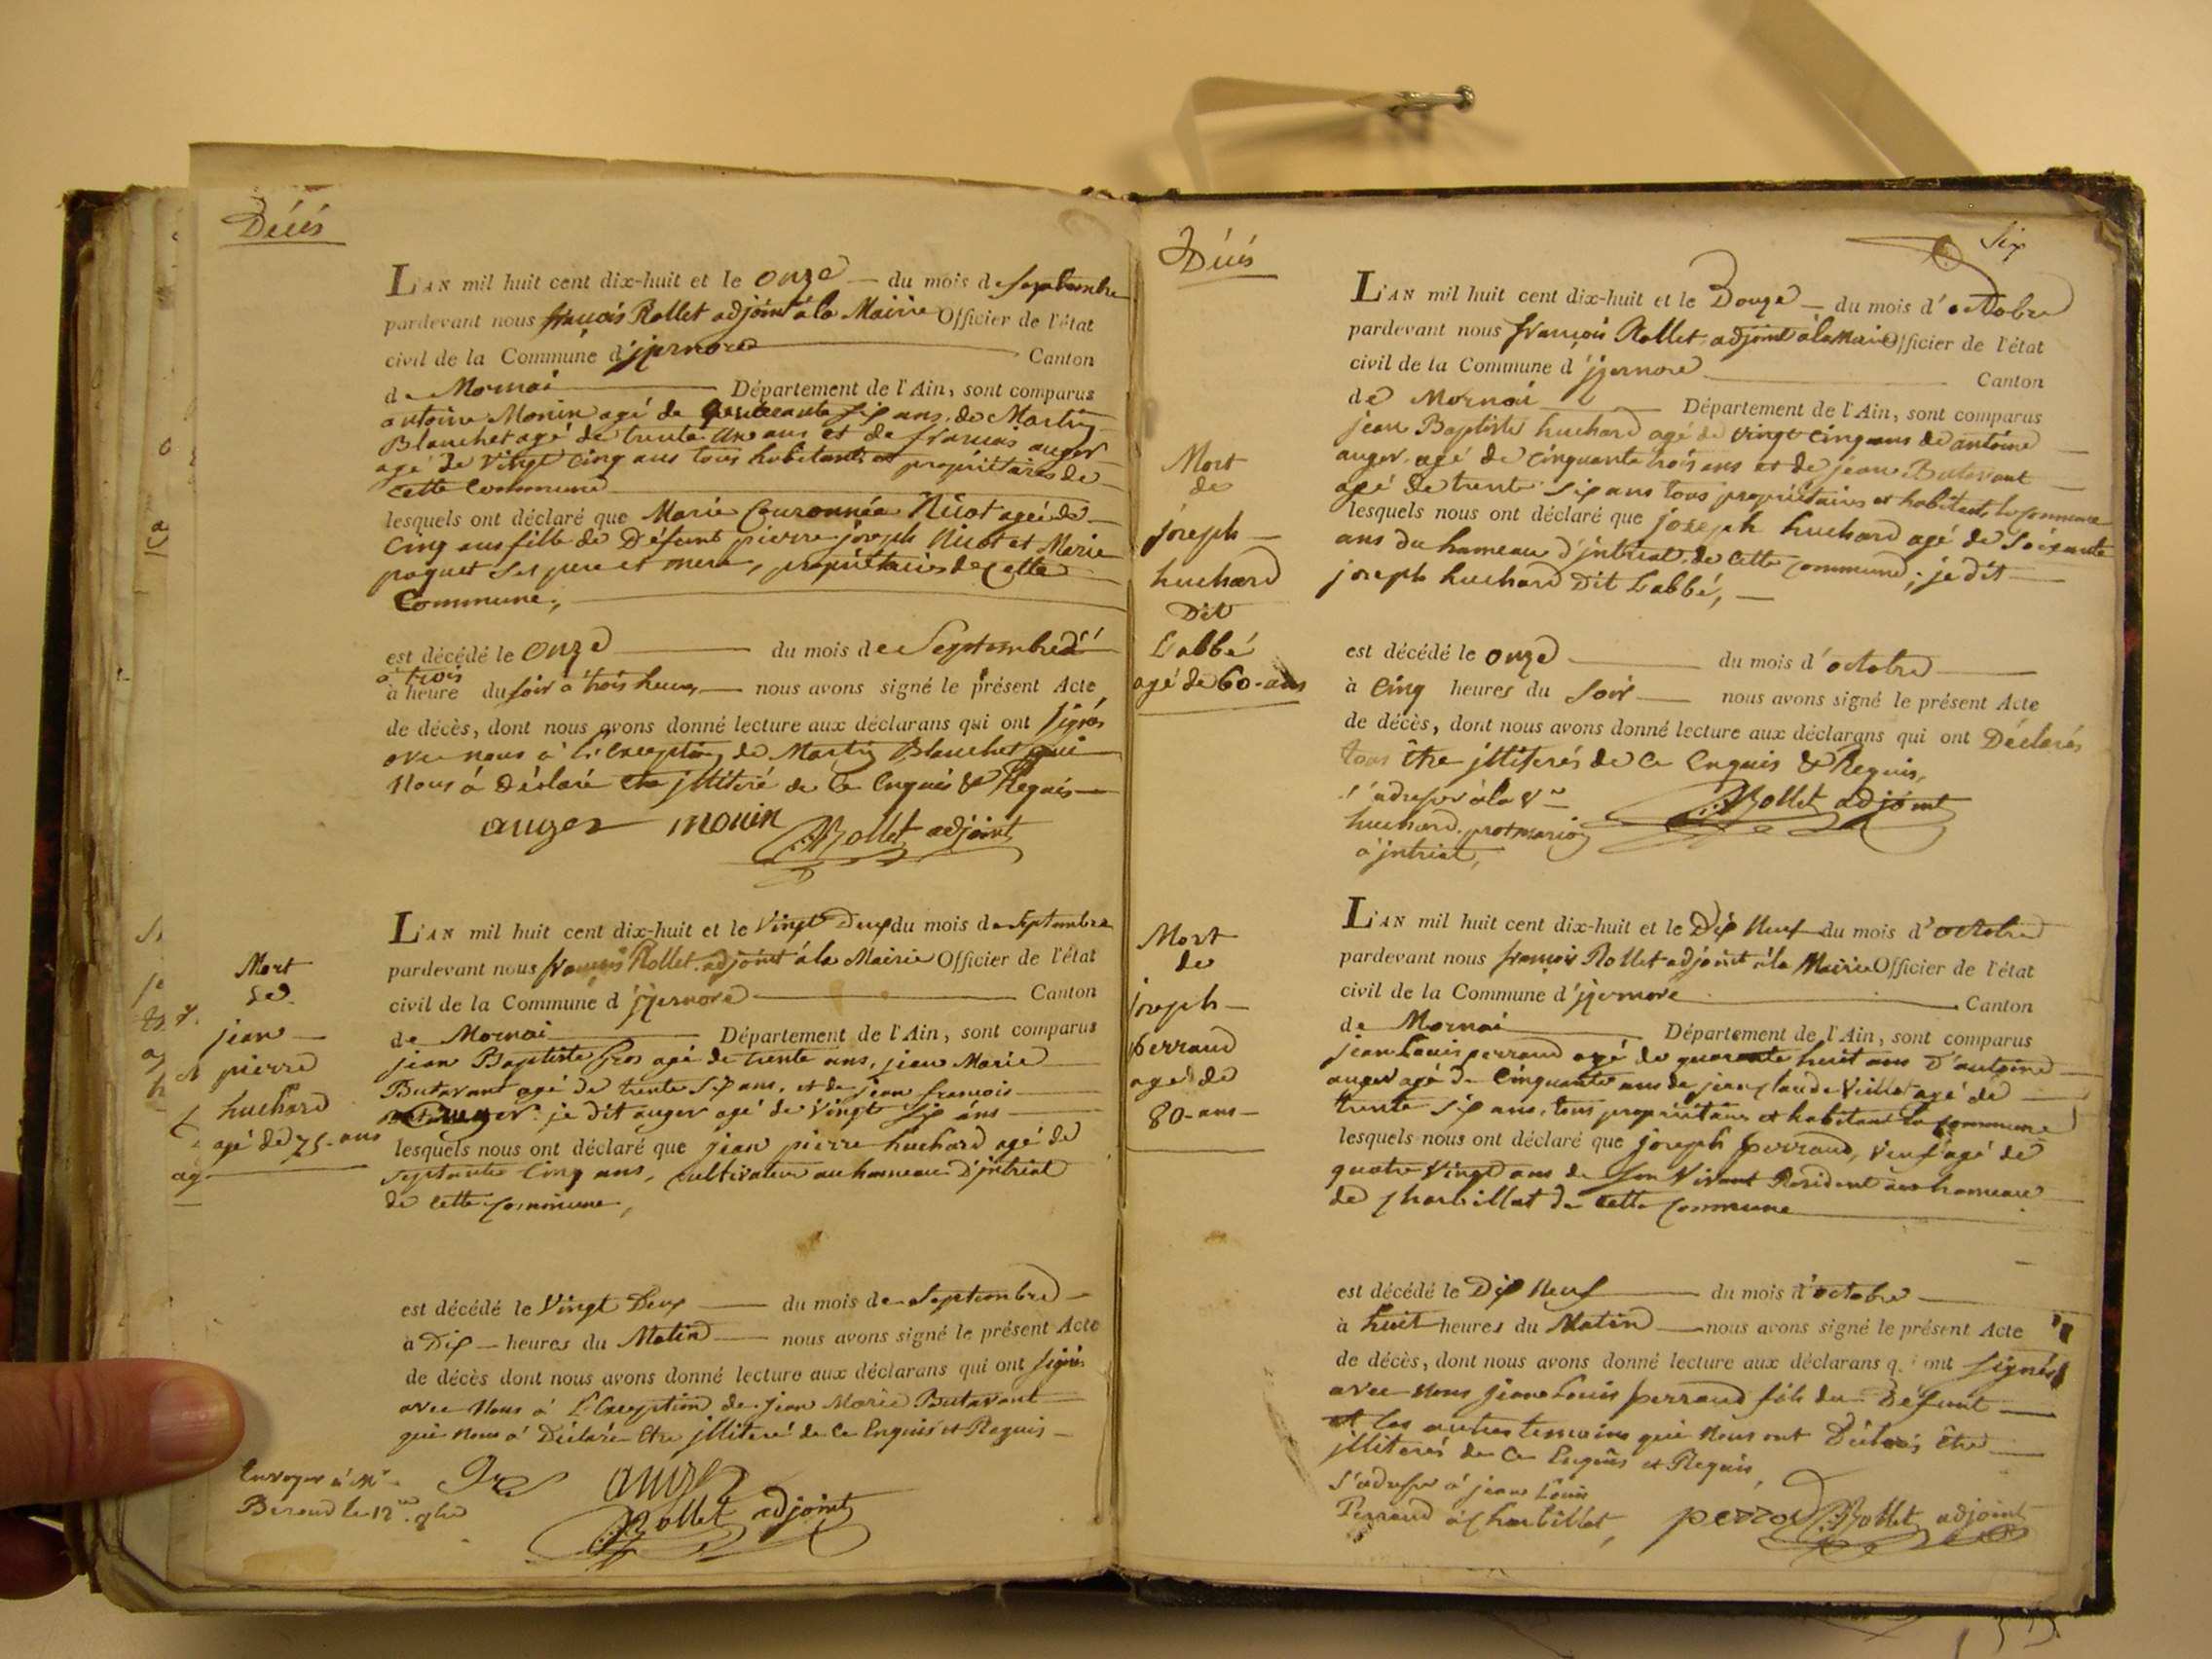 Décés
L'AN mil huit cent dix-huit et le onze du mois de Septembre
pardevant nous françois Rollet adjoint à la Mairie Officier de l'état
civil de la Commune d'jzernore Canton
de Mornai Département de l'Ain, sont comparus
antoine Monin agé de ans, de Martin
Blanchet agé de trente un ans et de francois auger
agé de vingt cinq ans tous habitants et propriétaires de
cette Commune
lesquels ont déclaré que Marie Couronnée Nicot ageé de
Cinq ans fille de Défunt pierre joseph Nicot et Marie
poquet ses pere et mere, propriétaires de Cette
Commune,
est décédé le onze du mois de Septembre
à trois
à heure du soir à trois heures nous avons signé le présent Acte
de décès, dont nous avons donné lecture aux déclarans qui ont signés
avec nous à L'Exception de Martin Blanchet qui
Nous à Déclaré etre jlliteré de Ce Enquis & Requis
auger monin Rollet adjoint
Mort
de
jean
pierre
huchard
agé de 75 ans
L'AN mil huit cent dix-huit et le Vingt Deux du mois de Septembre
pardevant nous françois Rollet adjoint à la Mairie Officier de l'état
civil de la Commune d'jzernore Canton
de Mornai Département de l'Ain, sont comparus
jean Baptiste Gros agé de trente ans, jean Marie
Butavant agé de trente six ans, et de jean francois
auger je dit auger agé de vingt six ans
lesquels nous ont déclaré que jean pierre huchard agé de
septante Cinq ans, Cultivateur au hameau D'jntriat
de cette Commune,
est décédé le Vingt Deux du mois de Septembre
à Dix heures du Matin nous avons signé le présent Acte
de décès dont nous avons donné lecture aux déclarans qui ont signés
avec Nous à L'Exception de jean Marie Butavant
qui nous à Déclaré Etre jlliteré de Ce Enquis et Requis
Envoyer à Mr
Beroud le 12 9bre
Gros auger
Rollet adjoint
Décés
Six
L'AN mil huit cent dix-huit et le Douze du mois d'octobre
pardevant nous françois Rollet adjoint à la Mairie Officier de l'état
civil de la Commune d'jzernore Canton
de Mornai Département de l'Ain, sont comparus
jean Baptiste huchard agé de vingt cinq ans de antoine
auger agé de cinquante trois ans et de jean Butavant
agé de trente six ans tous propriétaires et habitants la Commune
lesquels nous ont déclaré que joseph huchard agé de Soixante
ans du hameau d'jntriat de cette Commune; je dit
joseph huchard Dit Labbé,
Mort
de
joseph
huchard
Dit
Labbé
agé de 60 ans
est décédé le onze du mois d'octobre
à Cinq heures du Soir nous avons signé le présent Acte
de décès, dont nous avons donné lecture aux déclarans qui ont Déclarés
tous être jlliterés de Ce Enquis & Requis,
s'adresser à la Ve
huchard
à jntriat,
Rollet adjoint
Mort
de
joseph
perraud
agé de
80 ans
L'AN mil huit cent dix-huit et le Dix Neuf du mois d'octobre
pardevant nous françois Rollet adjoint à la Mairie Officier de l'état
civil de la Commune d'jzernore Canton
de Mornai Département de l'Ain, sont comparus
jean Louis perraud agé de quarante huit ans D'antoine
auger agé de Cinquante ans de jean Claude Veillet agé de
trente six ans, tous propriétaires et habitant la Commune
lesquels nous ont déclaré que joseph perraud, Veuf agé de
quatre Vingt ans de Son Vivant Resident au hameau
de Charbillat de cette Commune
est décédé le Dix Neuf du mois d'octobre
à huit heures du Matin nous avons signé le présent Acte
de décès, dont nous avons donné lecture aux déclarans qui ont signés
avec Nous jean Louis perraud fils du Défunt
et les autres temoins qui Nous ont Déclarés être
jlliterés de Ce Enquis et Requis,
s'adresser à jean Louis
Perraud à Charbillat,
perrod Rollet adjoint